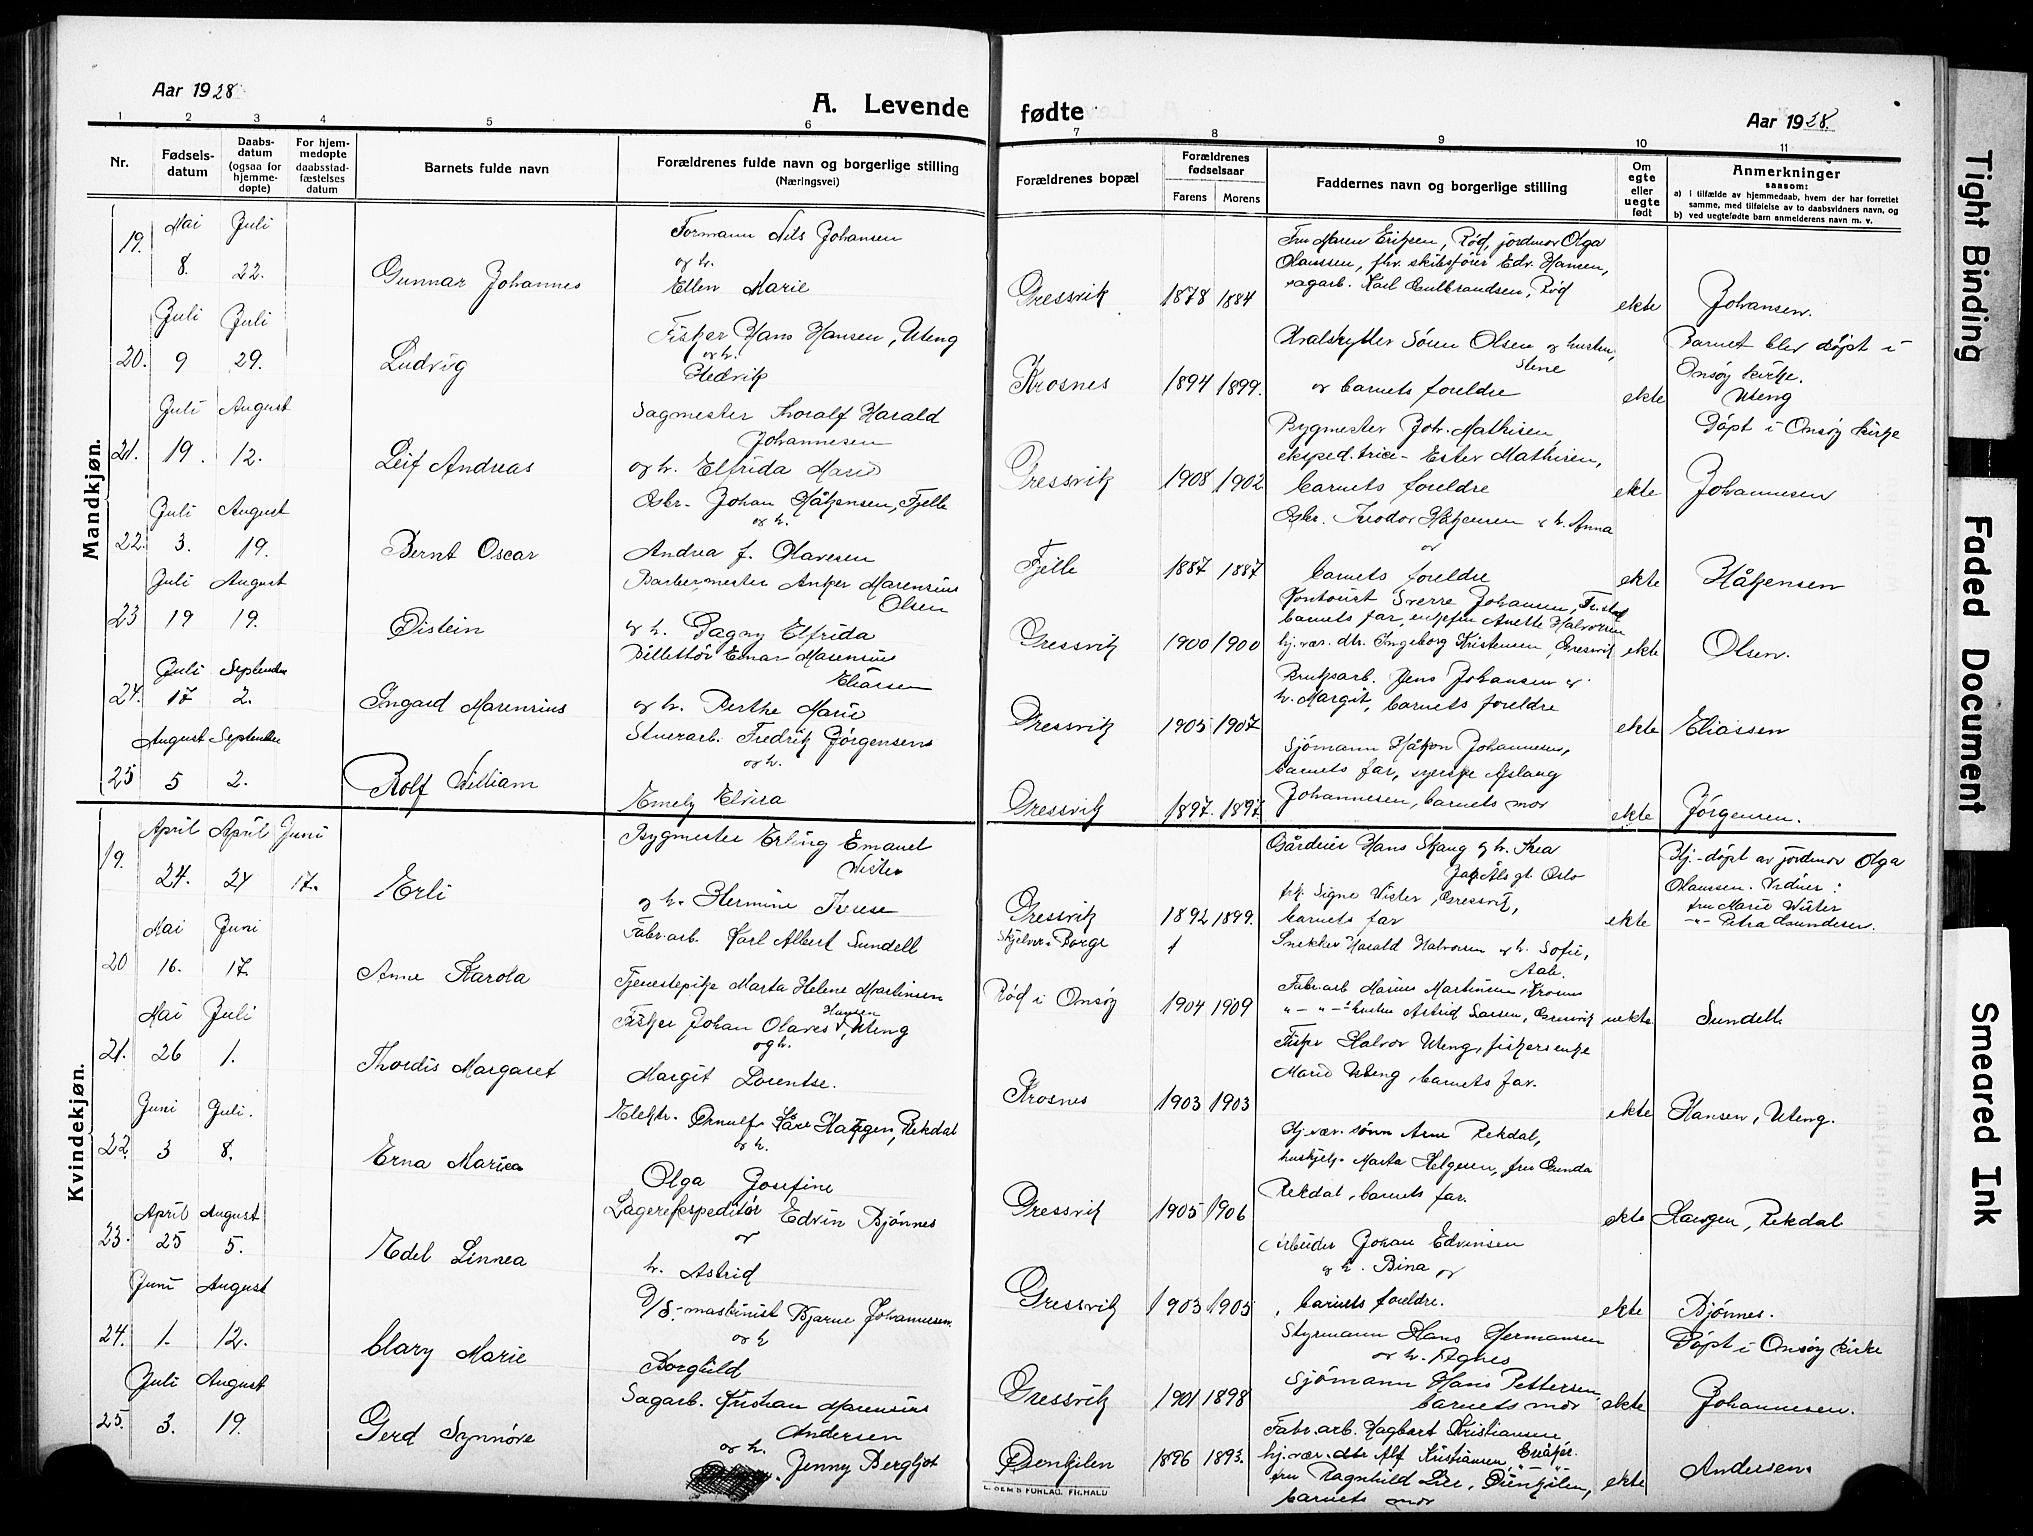 Aar 1928
A. Levende
fødte
Aar 1928.
1 2 3 4 5 6 7 8 9 10 11
Nr.
Fødsels-
datum
Daabs-
datum
(ogsaa for
hjemme-
døpte)
For hjem-
medøpte
daabsstad-
fæstelses
datum
Barnets fulde navn
Forældrenes fulde navn og borgerlige stilling
(Næringsvei)
Forældrenes bopæl
Forældrenes
fødselsaar
Farens Morens
Faddernes navn og borgerlige stilling
Om
egte
eller
uegte
født
Anmerkninger
saasom:
a) i tilfælde av hjemmedaab, hvem der har forrettet
samme, med tilføielse av to daabsvidners navn, og
b) ved uegtefødte barn anmelderens navn m. v.
Mandkjøn.
19. Mai 8. Juli 22. Gunnar Johannes
Formann Nils Johansen
og h.
Ellen Marie
Gressvik 1878 1884
Fru Maren Eriksen, Rød, jordmor Olga
Olaussen, fhv. skibsfører Edv. Hansen,
sagarb. Karl Gulbrandsen, Rød
ekte Johansen.
20. Juli 9 Juli 29. Ludvig
Fisker Hans Hansen, Uteng
og h.
Hedvik
Krosnes 1894 1899.
Hvalskytter Søren Olsen og hustru,
Stene
og barnets foreldre
ekte
Barnet blev døpt i
Onsøy kirke.
Uteng
21. Juli 19. August 12. Leif Andreas
Sagmester Thoralf Harald
Johannesen
og h. Elfrida Marie
Gressvik 1908 1902
Bygmester Joh. Mathisen
ekspeditrice Ester Mathisen,
barnets foreldre
ekte
Døpt i Onsøy kirke
Johannesen
22. Juli 3. August 19. Bernt Oscar
Gbr. Johan Håkensen, Fjelle
og h.
Andrea f. Olavesen
Fjelle 1887 1887
Gbr. Teodor Håkensen & h. Anna
og
barnets foreldre
ekte Håkensen
23 Juli 19 August 19. Øistein
Barbermester Anker Marensius
Olsen
og h. Dagny Elfrida
Gressvik 1900 1900
Kontorist Sverre Johansen, Fr.stad
barnets far, enkefru Anette Halvorsen
hj.vær. dtr. Ingeborg Kristensen, Gressvik
ekte Olsen.
24. Juli 17 September 2. Ingard Marensius
Billettør Einar Marensius
Eliassen
og h. Berthe Marie
Gressvik 1905 1907
Bruksarb. Jens Johansen og
h. Margit, barnets foreldre
ekte Eliassen
25 August 5 September 2. Rolf William
Stuerarb. Fredrik Jørgensen
og h.
Emely Elvira
Gressvik 1897. 1897
Sjømann Håkon Johannesen,
barnets far, syerske Aslaug
Johannesen, barnets mor
ekte Jørgensen.
Kvindekjøn.
19. April 24. April 24 Juni 17. Erli
Bygmester Erling Emanuel
Wister
og h. Hermine Terese
Gressvik 1892 1899.
Gårdeier Hans Skaug og h. Thea
gt. Oslo
frk. Signe Wister, Gressvik,
barnets far
ekte
Hj.-døpt av jordmor Olga
Olaussen. Vidner:
fru Marie Wister
-"- Petra Gundersen.
20 Mai 16. Juni 17. Anne Karola
Fabr.arb. Karl Albert Sundell
Tjenestepike Marta Helene Martinsen
Skjelvi Borge
Rød i Onsøy 1904 1909
Snekker Harald Halvorsen og h. Sofie,
Aale.
Fabr.arb Marius Martinsen, Krosnes
-"- -"- hustru Astrid Larsen, Gressvik
uekte Sundell
21. Mai 26 Juli 1. Thordis Margaret
Fisker Johan Olaves Hansen, Uteng
og h.
Margit Lorentse.
Krosnes 1903 1903
Fisker Halvor Uteng, fiskersenke
Marie Uteng, barnets far.
ekte Hansen, Uteng.
22. Juni 3 Juli. 8. Erna Marie
Elektr. Ornulf Kåre Haugen, Rekdal
og h.
Olga Josefine
Gressvik 1905 1906
Hj.vær. sønn Arne Rekdal,
huskjelp Marta Helgesen, fru Gunda
Rekdal, barnets far.
ekte Haugen, Rekdal
23. April 25 August 5. Edel Linnea
Lagerekspeditør Edvin Bjønnes
og
h. Astrid
Gressvik 1903 1905
Arbeider Johan Edvinsen
og h. Bina og
barnets foreldre.
ekte Bjønnes.
24. Juni 1. August 12. Clary Marie
D/S.-maskinist Bjarne Johannesen
og h
Borghild
Gressvik 1901 1898
Styrmann Hans Hermansen
og h. Agnes
Sjømann Hans Pettersen
barnets mor
ekte
Døpt i Onsøy kirke
Johannesen.
25. Juli 3. August 19. Gerd Synnøve
Sagarb. Kristian Marensius
Andersen
og h.
Jenny Bergljot
Ørenkilen 1896 1893.
Fabr.arb. Hagbart Kristiansen
hj.vær. dtr Alf Kristiansen, Enåker
fru Ragnhild Lie, Ørenkilen,
barnets mor
ekte Andersen
E. SEM'S FORLAG, FR.HALD
Tight Binding
Faded Document
Smeared Ink